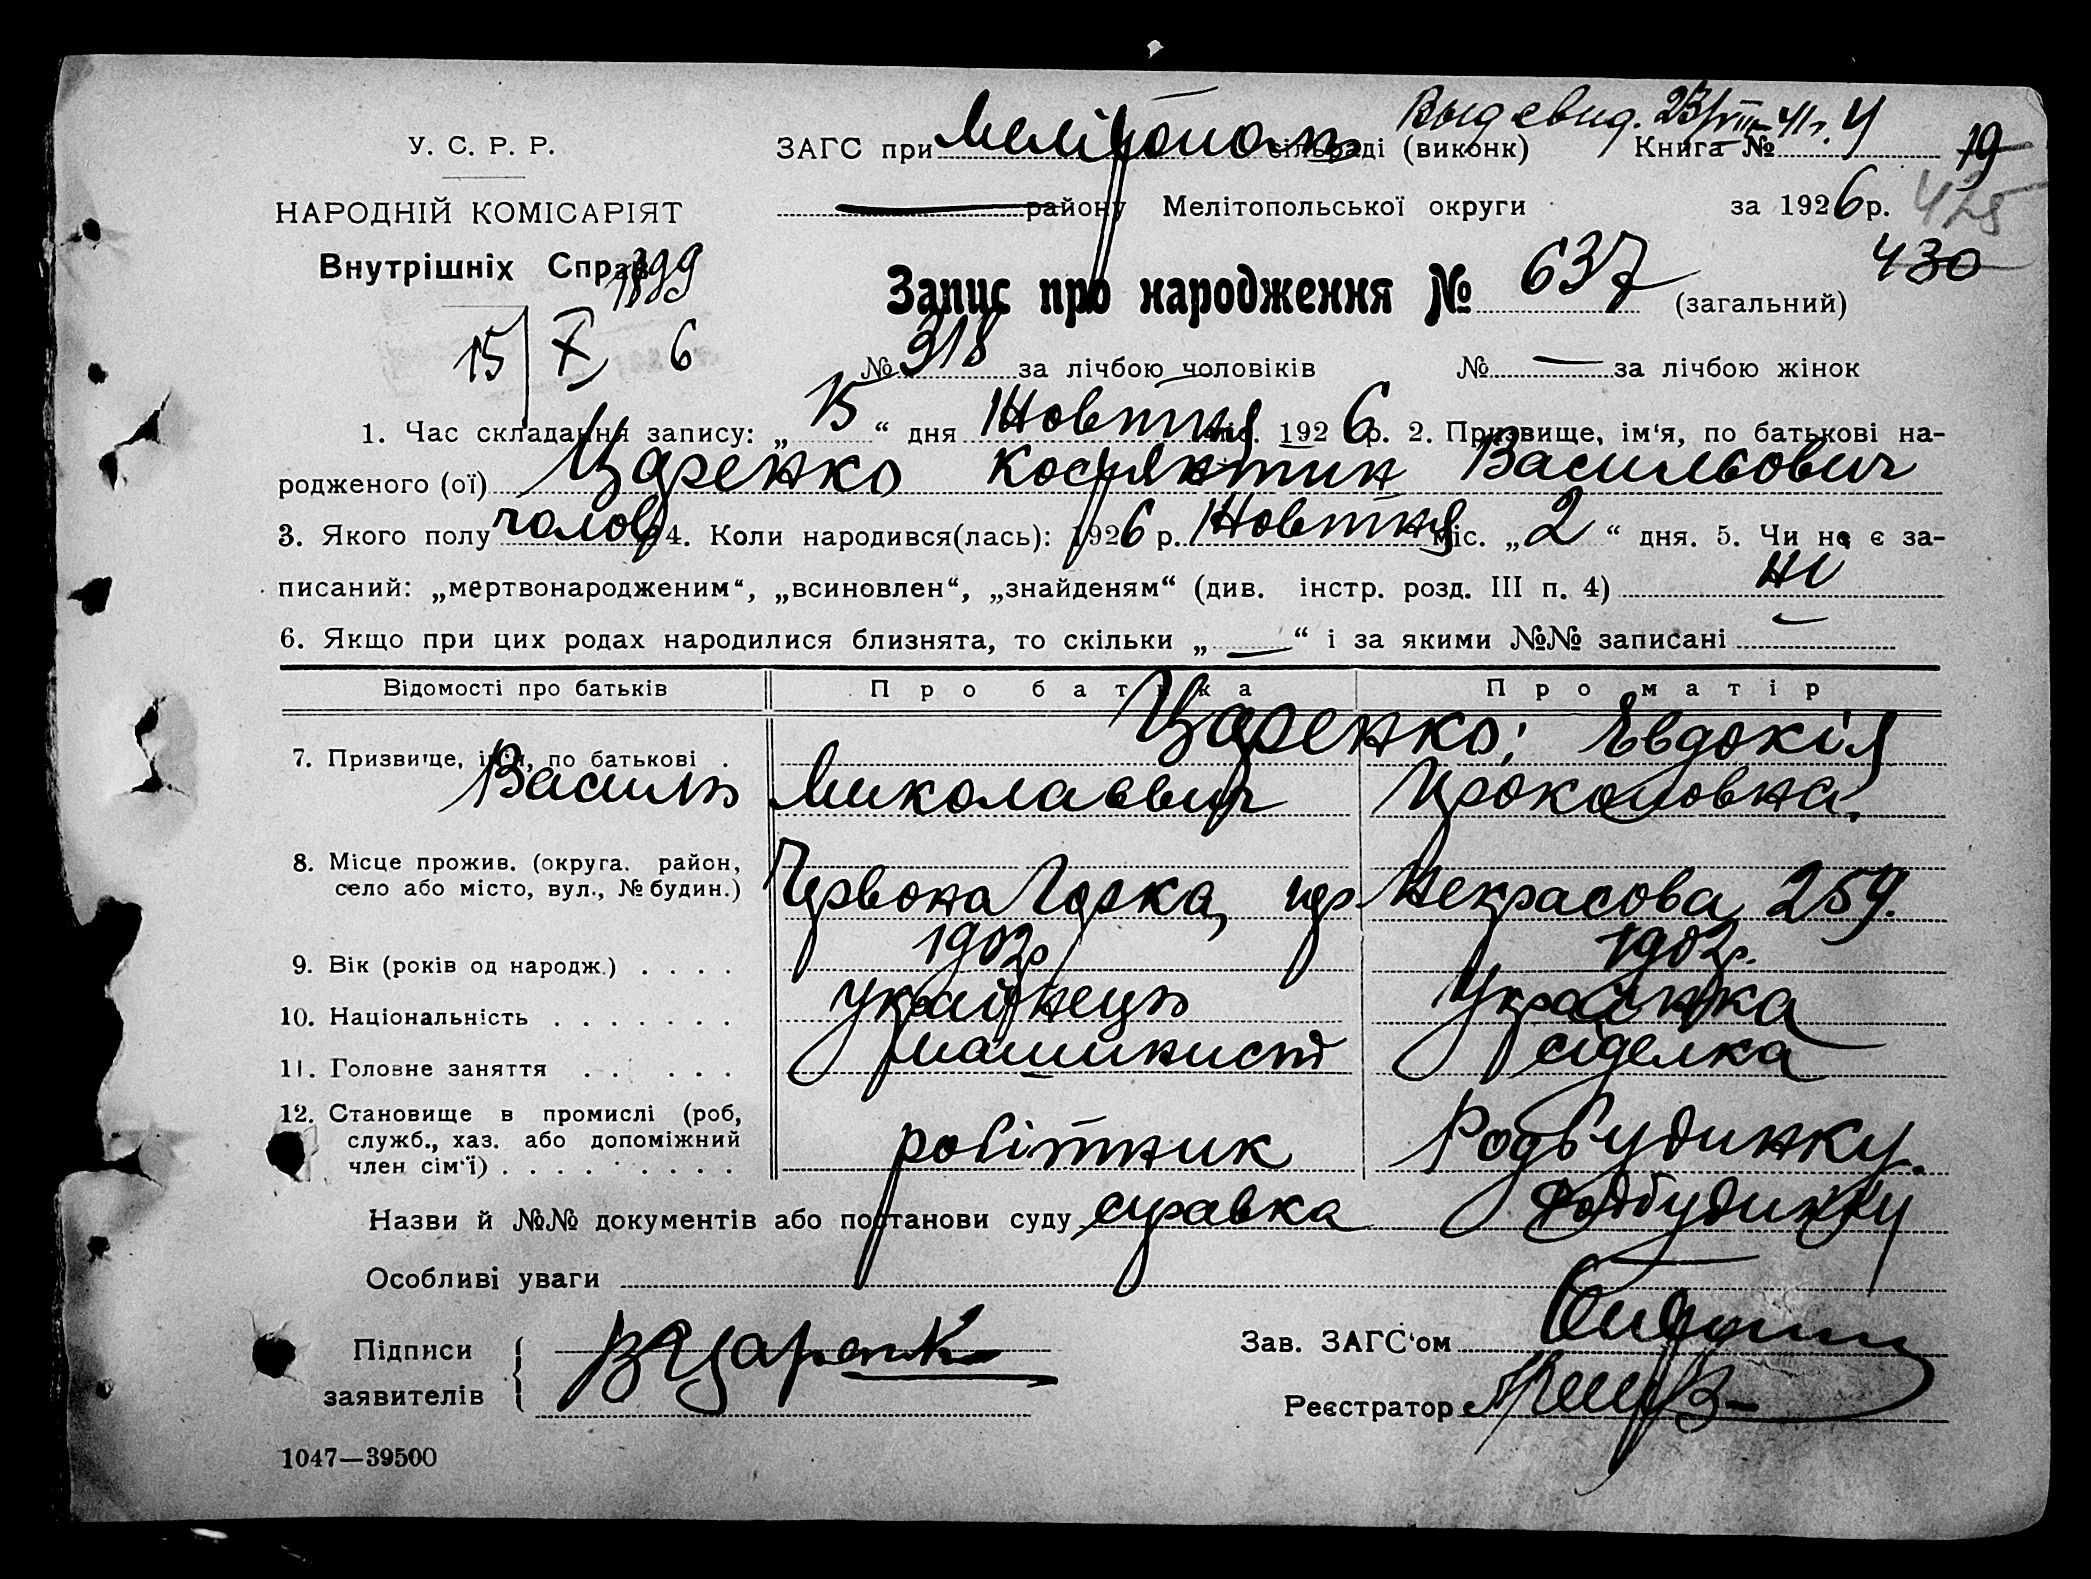 Выд свид. 23/VIII 41 г.
У. С. Р. Р.
ЗАГС при Мелітополь сільраді (виконк) Книга № 4 19
НАРОДНІЙ КОМІСАРІЯТ
району Мелітопольської округи за 1926 р. 425
Внутрішніх Справ 1899
430
Запис про народження № 637 (загальний)
15/X 6
№ 318 за лічбою чоловіків № — за лічбою жінок
1. Час складання запису: „ 15 “ дня Жовтня міс. 1926 р. 2. Призвище, ім‘я, по батькові на-
родженого (ої) Царенко Костянтин Васильович
3. Якого полу чолов 4. Коли народився(лась): 1926 р. Жовтня міс. „ 2 “ дня. 5. Чи не є за-
писаний: „мертвонародженим“, „всиновлен“, „знайденям“ (див. інстр. розд. III п. 4) ні
6. Якщо при цих родах народилися близнята, то скільки „ — “ і за якими №№ записані —
Відомості про батьків Про батька Про матір
Царенко; Євдокія
7. Призвище, ім‘я, по батькові .
Василь Миколаєвич Прокоповна.
8. Місце прожив. (округа. район,
село або місто, вул., № будин.) Червона Горка, Некрасова 259.
9. Вік (років од народж.) . . . . 1902р 1902р.
10. Національність . . . . . . . українець Українка
11. Головне заняття . . . . . машинист сіделка
12. Становище в промислі (роб,
служб., хаз. або допоміжний
член сім‘ї) . . . . . . . . . . робітник Родбудинку.
Назви й №№ документів або постанови суду справка Родбудинку
Особливі уваги
Підписи
заявителів
ВЦаренко
Зав. ЗАГС‘ом
Реєстратор
1047—39500